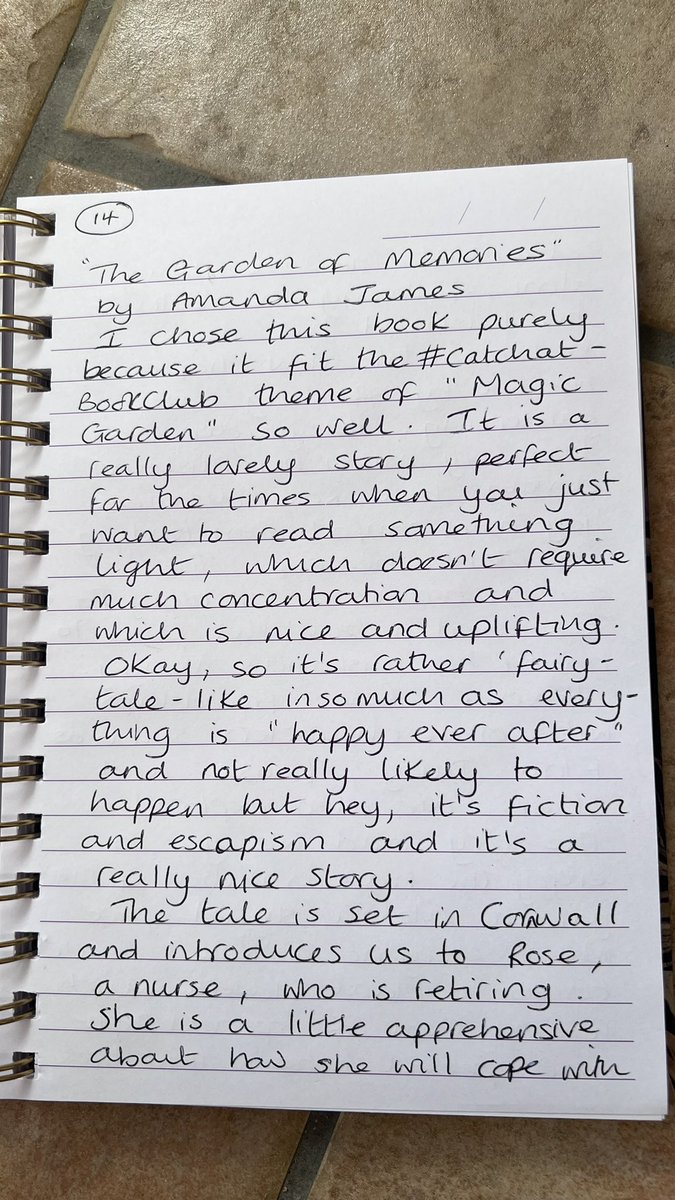 14
"The Garden of Memories"
by Amanda James
I chose this book purely
because it fit the #Catchat-
BookClub theme of "Magic
Garden" so well. It is a
really lovely story, perfect
for the times when you just
want to read something
light, which doesn't require
much concentration and
which is nice and uplifting.
Okay, so it's rather 'fairy-
tale-like insomuch as every-
thing is "happy ever after"
and not really likely to
happen but hey, it's fiction
and escapism and it's a
really nice story.
The tale is set in Cornwall
and introduces us to Rose,
a nurse, who is retiring.
She is a little apprehensive
about how she will cope with